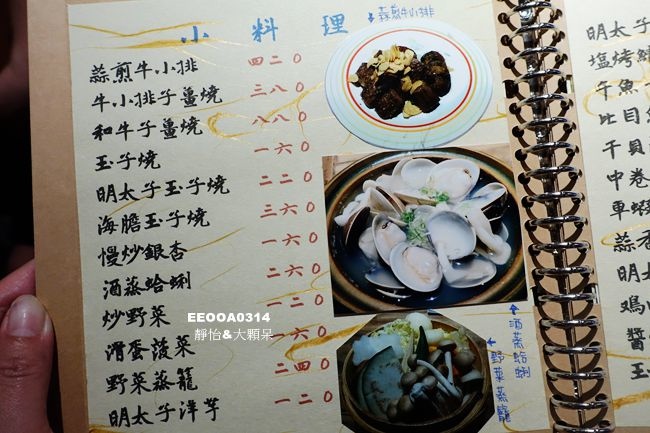 小料理
蒜煎牛小排 四二〇
牛小排子薑燒 三八〇
和牛子薑燒 八八〇
玉子燒 一六〇
明太子玉子燒 二二〇
海膽玉子燒 三六〇
慢炒銀杏 一六〇
酒蒸蛤蜊 二六〇
炒野菜 一二〇
滑蛋菠菜 一六〇
野菜蒸籠 二四〇
明太子洋芋 一二〇
蒜煎牛小排
酒蒸蛤蜊
野菜蒸籠
EEOOA0314
靜怡&大顆呆
明太
塩烤
午魚
比目
干貝
中卷
車蝦
蒜香
明太
醬
玉